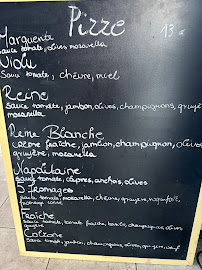 Pizze 13
Marguerite
Sauce tomate, olives mozarella
Sauce tomate, chèvre, miel
Reine
Sauce tomate, jambon, olives, champignons, gruyère
mozarella
Reine Blanche
crème fraîche, jambon, champignon, olives
gruyère, mozarella
Napolitaine
sauce tomate, câpres, anchois, olives
5 fromages
sauce tomate, mozarella, chèvre, gruyère, roquefort,
Fraîche
sauce tomate, tomate fraîche, champignons, olives
gruyère
Calzone
Sauce tomate, jambon, champignons, olives, gruyère, oeuf